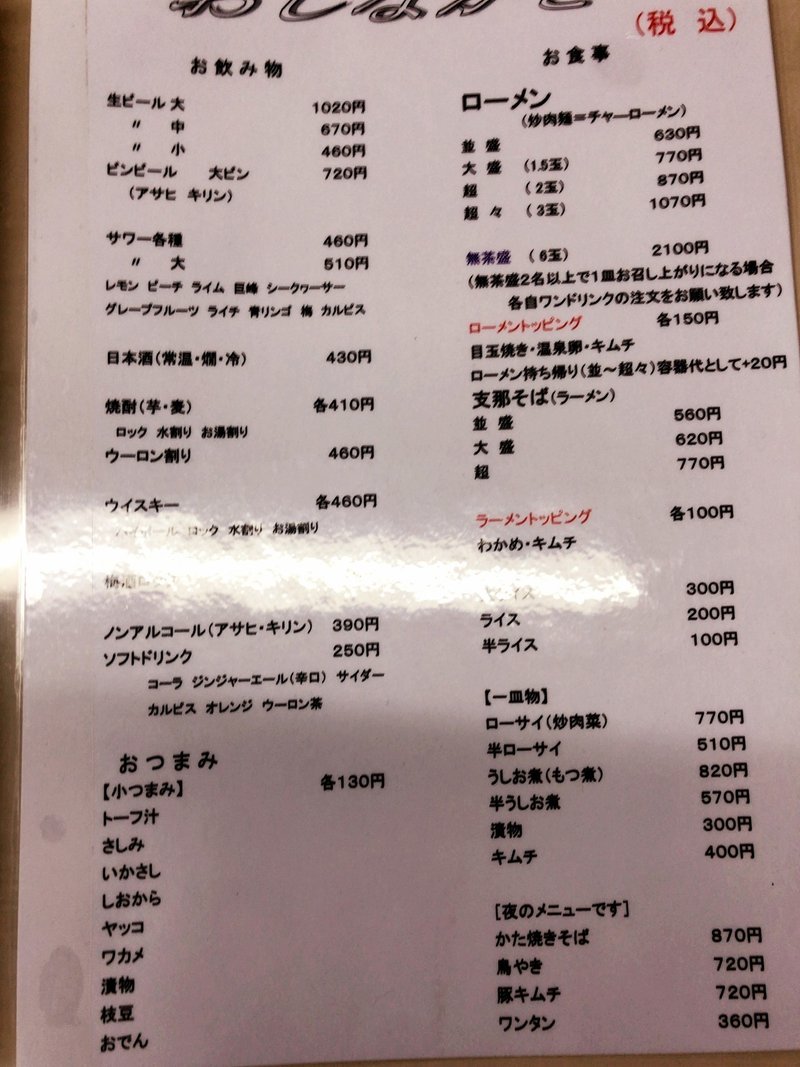 (税込)
お飲み物
生ビール 大 1020円
〃 中 670円
〃 小 460円
ビンビール 大ビン 720円
(アサヒ キリン)
サワー各種 460円
〃 大 510円
レモン ピーチ ライム 巨峰 シークヮーサー
グレープフルーツ ライチ 青リンゴ 梅 カルピス
日本酒(常温・燗・冷) 430円
焼酎(芋・麦) 各410円
ロック 水割り お湯割り
ウーロン割り 460円
ウイスキー 各460円
ロック 水割り お湯割り
ノンアルコール(アサヒ・キリン) 390円
ソフトドリンク 250円
コーラ ジンジャーエール(辛口) サイダー
カルピス オレンジ ウーロン茶
おつまみ
【小つまみ】 各130円
トーフ汁
さしみ
いかさし
しおから
ヤッコ
ワカメ
漬物
枝豆
おでん
お食事
ローメン
(炒肉麺=チャーローメン)
並盛 630円
大盛 (1.5玉) 770円
超 (2玉) 870円
超々 (3玉) 1070円
無茶盛 (6玉) 2100円
(無茶盛2名以上で1皿お召し上がりになる場合
各自ワンドリンクの注文をお願い致します)
ローメントッピング 各150円
目玉焼き・温泉卵・キムチ
ローメン持ち帰り(並〜超々)容器代として+20円
支那そば(ラーメン)
並盛 560円
大盛 620円
超 770円
ラーメントッピング 各100円
わかめ・キムチ
300円
ライス 200円
半ライス 100円
【一皿物】
ローサイ(炒肉菜) 770円
半ローサイ 510円
うしお煮(もつ煮) 820円
半うしお煮 570円
漬物 300円
キムチ 400円
[夜のメニューです]
かた焼きそば 870円
鳥やき 720円
豚キムチ 720円
ワンタン 360円